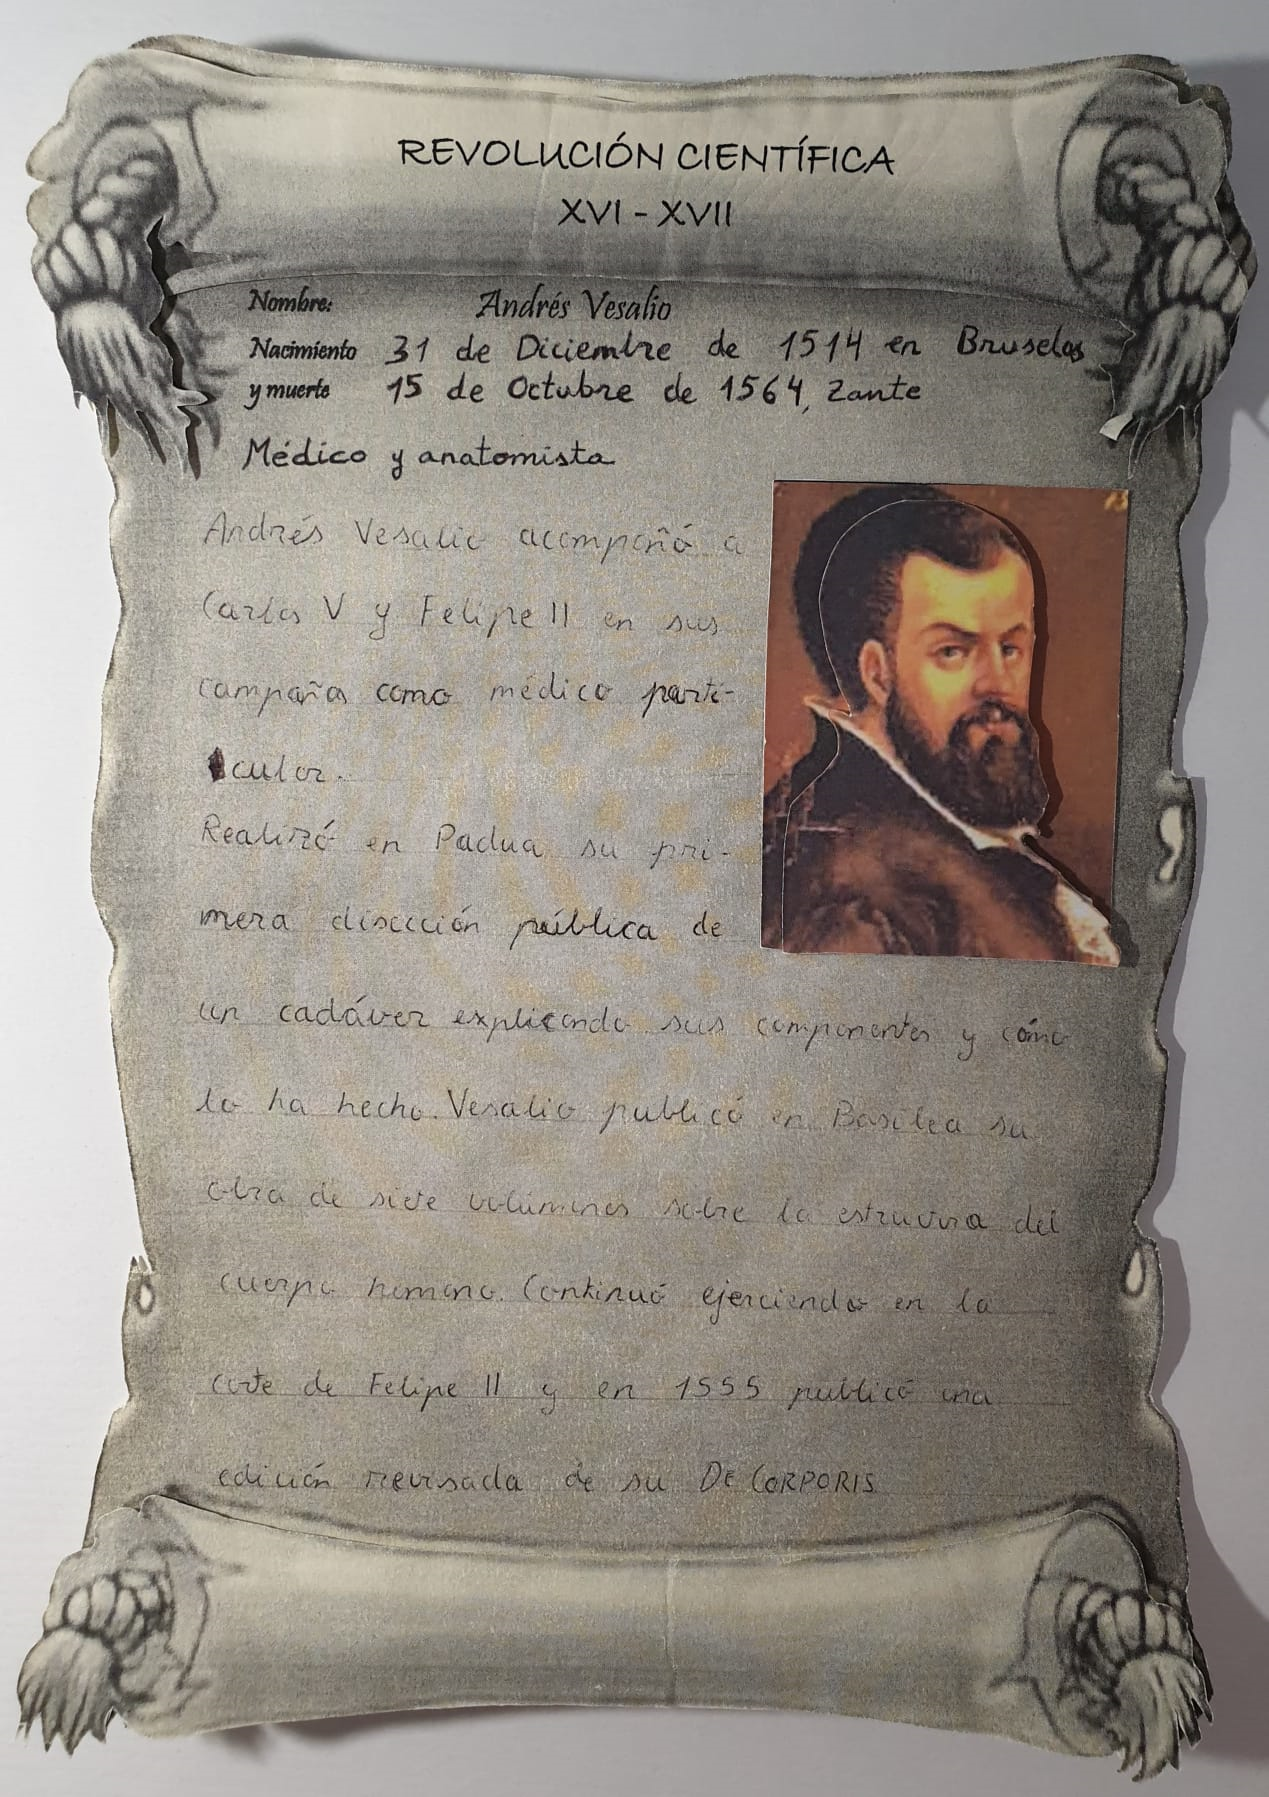 REVOLUCIÓN CIENTÍFICA
XVI - XVII
Nombre: Andrés Vesalio
Nacimiento 31 de Diciembre de 1514 en Bruselas
y muerte 15 de Octubre de 1564, Zante
Médico y anatomista
Andrés Vesalio acompañó a
Carlos V y Felipe II en sus
campañas como médico parti-
cular.
Realizó en Padua su pri-
mera disección pública de
un cadáver explicando sus componentes y cómo
lo ha hecho. Vesalio publicó en Basilea su
obra de siete volúmenes sobre la estructura del
cuerpo humano. Continuó ejerciendo en la
corte de Felipe II y en 1555 publicó una
edición revisada de su DE CORPORIS